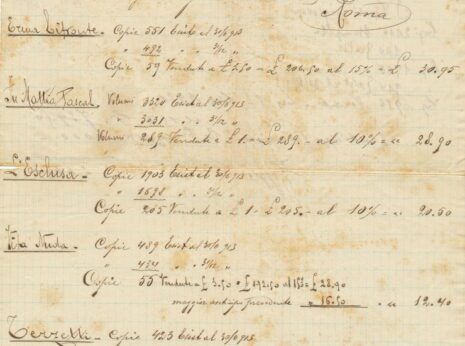 Roma
Erma bifronte - Copie 551 Esist al 30/6 913
" 492 " " 31/12 "
Copie 59 Vendute a £ 3.50 = £ 206.50 al 15% = £ 30.95
Fu Mattia Pascal, Volumi 3320 Esist al 30/6 913
" 3031 " " 31/12 "
Volumi 289 Vendute a £ 1.- = £ 289.- al 10% = " 28.90
L'Esclusa - Copie 1903 Esist al 30/6 913
" 1698 " " 31/12 "
Copie 205 Vendute a £ 1 - £ 205.- al 10% = " 20.50
Vita Nuda - Copie 489 Esist al 30/6 913
" 434 " " 31/12 "
Copie 55 Vendute a £ 3.50 = £ 192.50 al 15% = £ 28.90
maggior anticipo precedente " 16.50 = " 12.40
Terzetti - Copie 423 Esist al 30/6 913